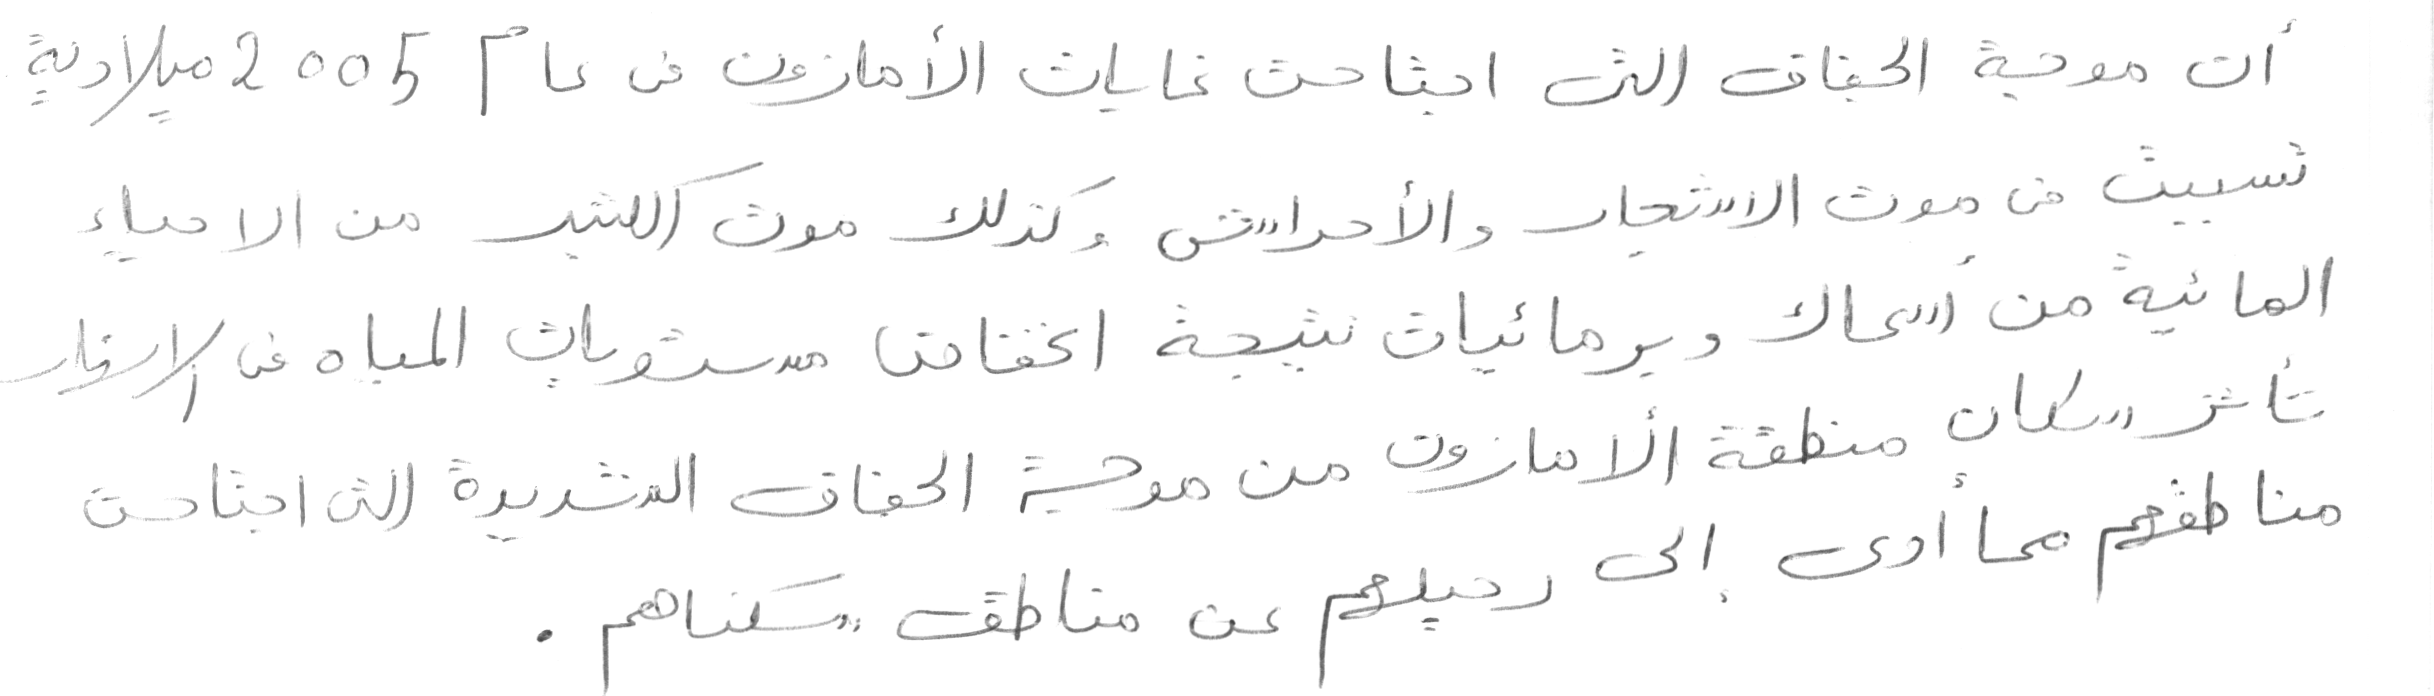 أن موجة الجفاف التي اجتاحت غابات الأمازون في عام 2005 ميلادية
تسببت في موت الاشجار والأحراش وكذلك موت الكثير من الاحياء
المائية من أسماك وبرمائيات نتيجة انخفاض مستويات المياه في الانهار
تأثر سكان منطقة الأمازون من موجة الجفاف الشديدة التي اجتاحت
مناطقهم مما أدى إلى رحيلهم عن مناطق سكناهم .